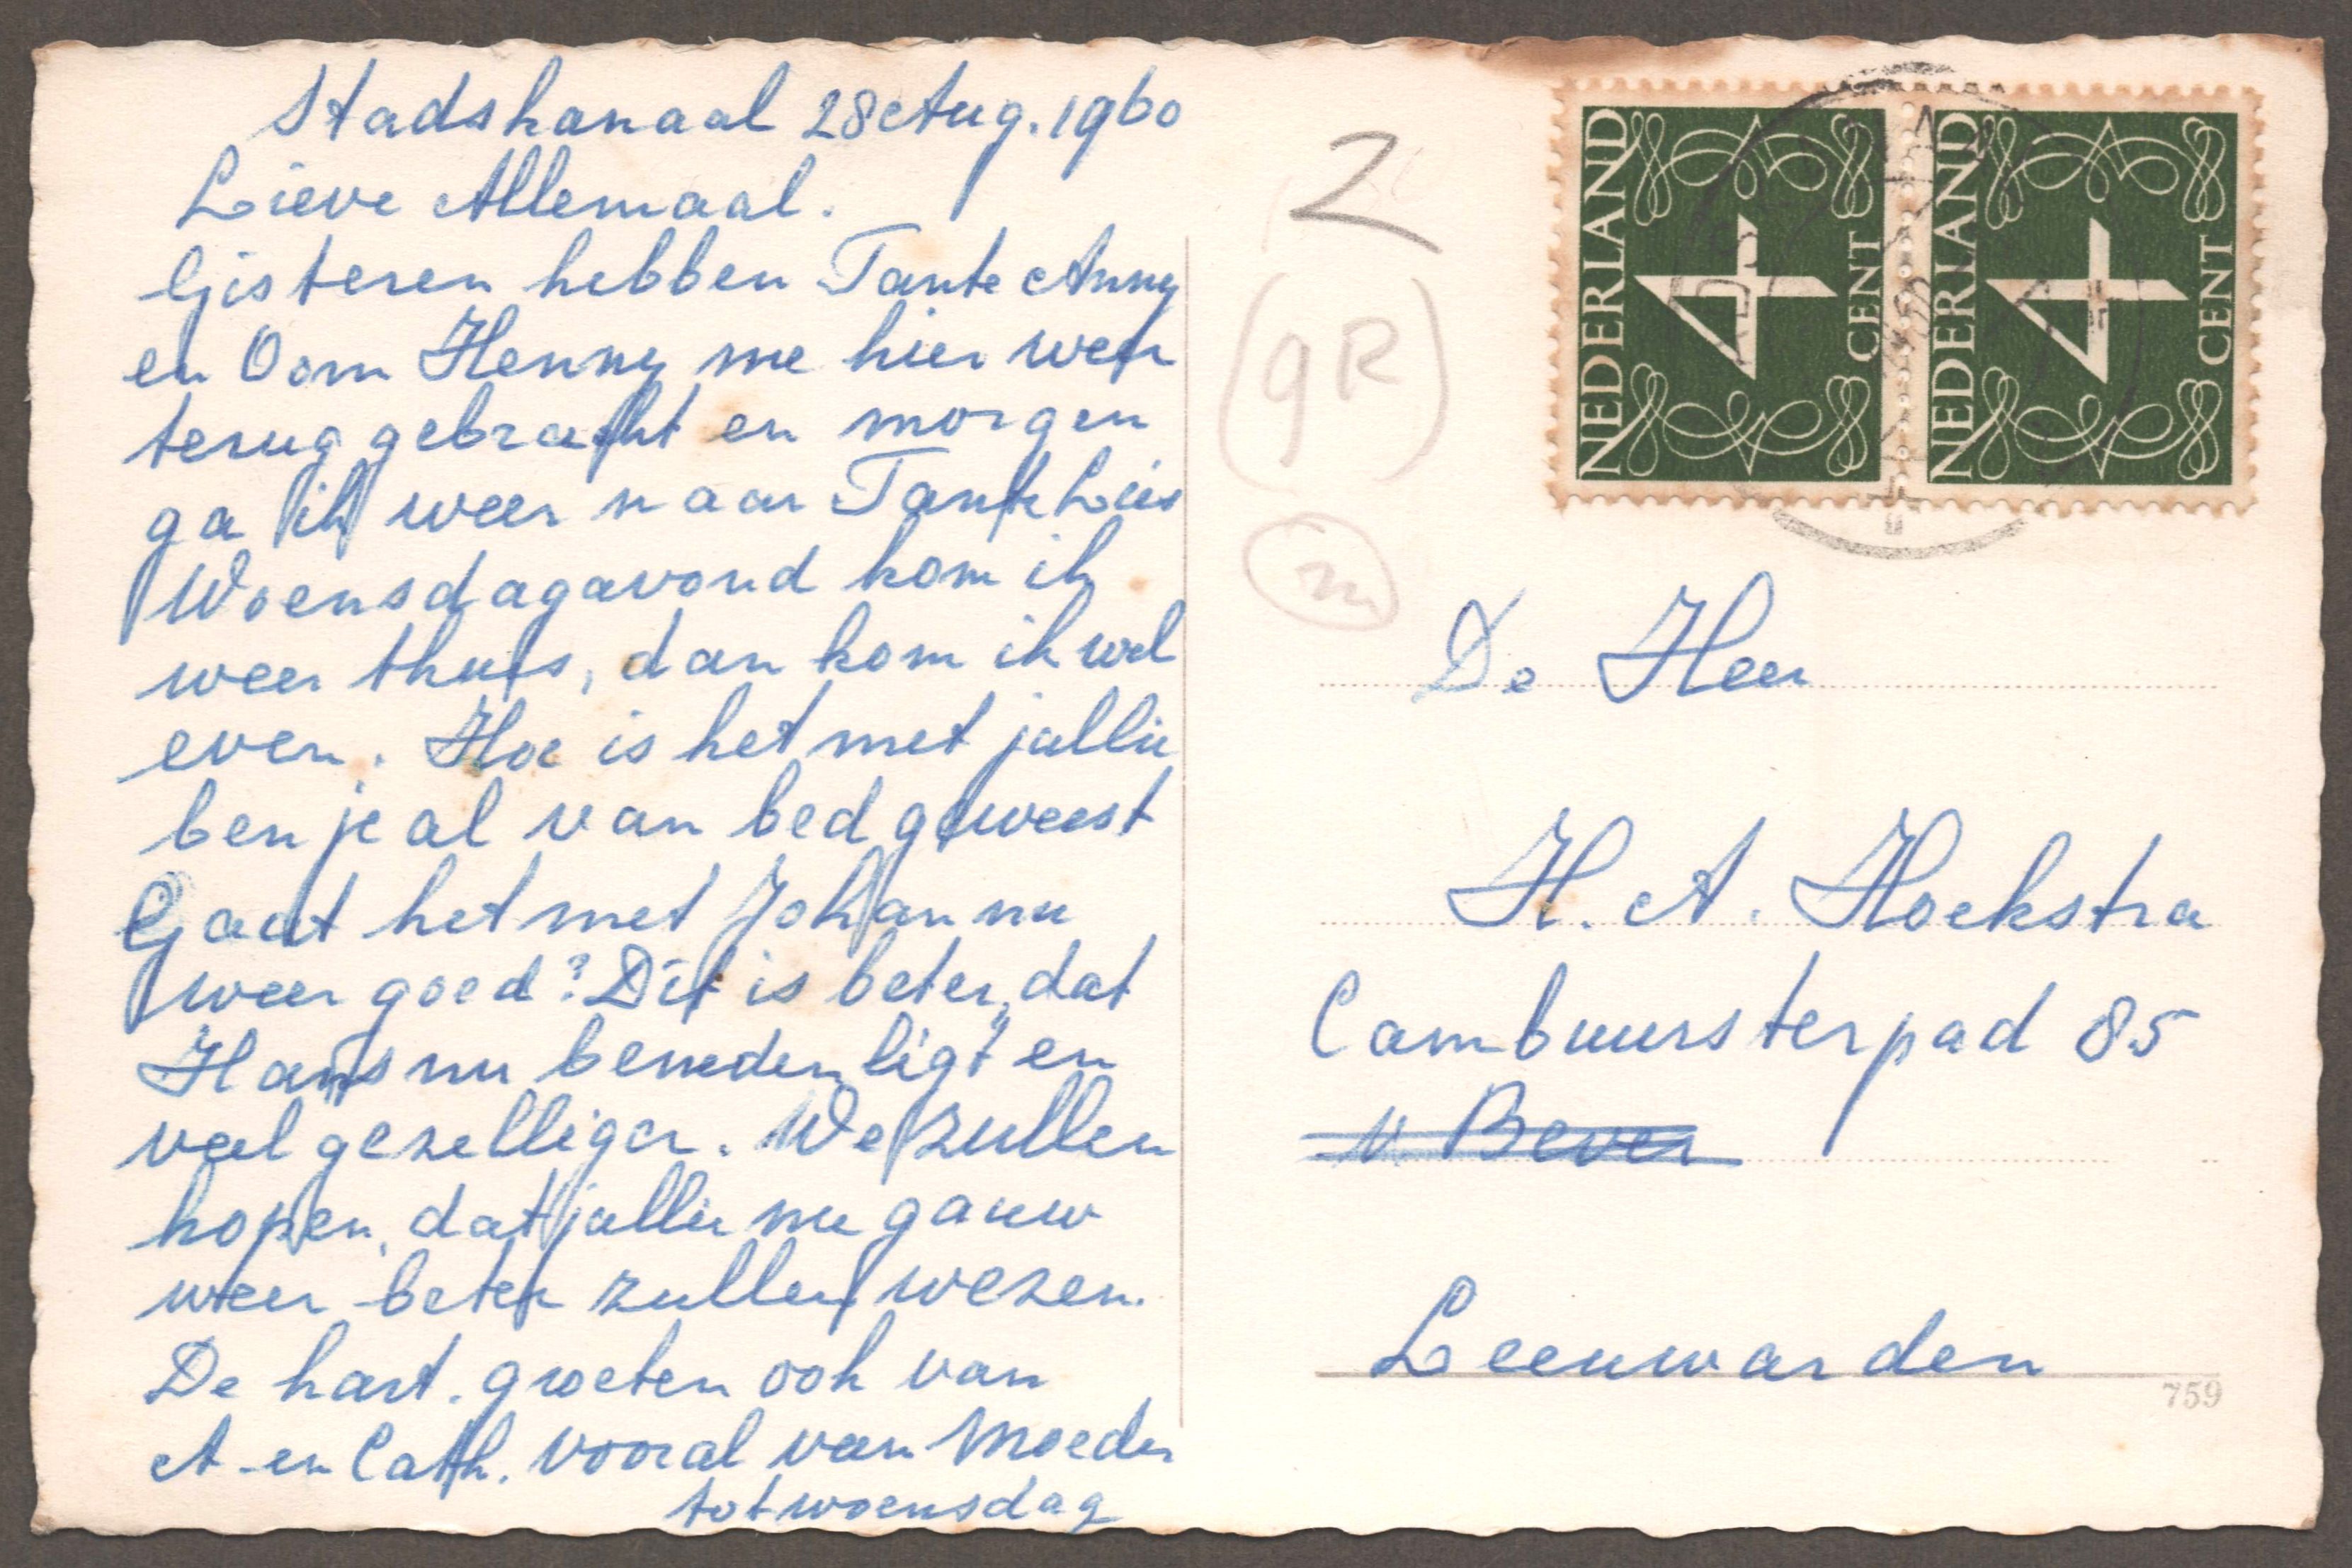 Stadskanaal 28 Aug. 1960
Lieve Allemaal.
Gisteren hebben Tante Anny
en Oom Henny me hier weer
terug gebracht en morgen
ga ik weer naar Tante Lies
Woensdagavond kom ik
weer thuis, dan kom ik wel
even. Hoe is het met jullie
ben je al van bed geweest
Gaat het met Johan nu
weer goed? Dit is beter, dat
Hans nu beneden ligt en
veel gezelliger. We zullen
hopen, dat jullie nu gauw
weer beter zullen wezen.
De hart. groeten ook van
A. en Cath. vooral van Moeder
tot woensdag
2
(gR)
m
NEDERLAND
4
CENT
NEDERLAND
4
CENT
De Heer
H. A. Hoekstra
Cambuursterpad 85
v. Bever
Leeuwarden
759